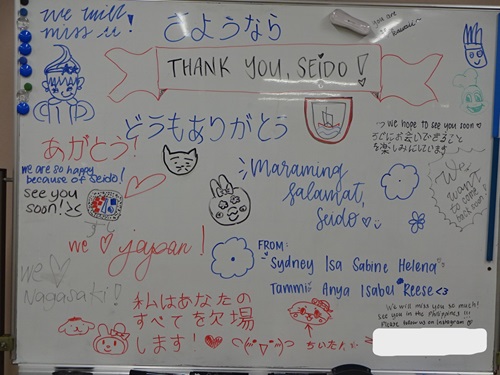 we will
miss u!
さようなら
you are
so kawaii~
THANK YOU, SEIDO!
どうもありがとう
あがとう!
we are so happy
because of Seido!
see you
soon! ><
~> we hope to see you soon ♡
を楽しみにしています
Maraming
salamat,
Seido ♡
We
want
to come
back soon
we ♡ japan!
we ♡
Nagasaki!
FROM:
Sydney Isa Sabine Helena
Tammi Anya Isabel Reese <3
私はあなたの
すべてを欠場
します! ♥
We will miss you so much!
See you in the Philippines !!!
Please follow us on Instagram